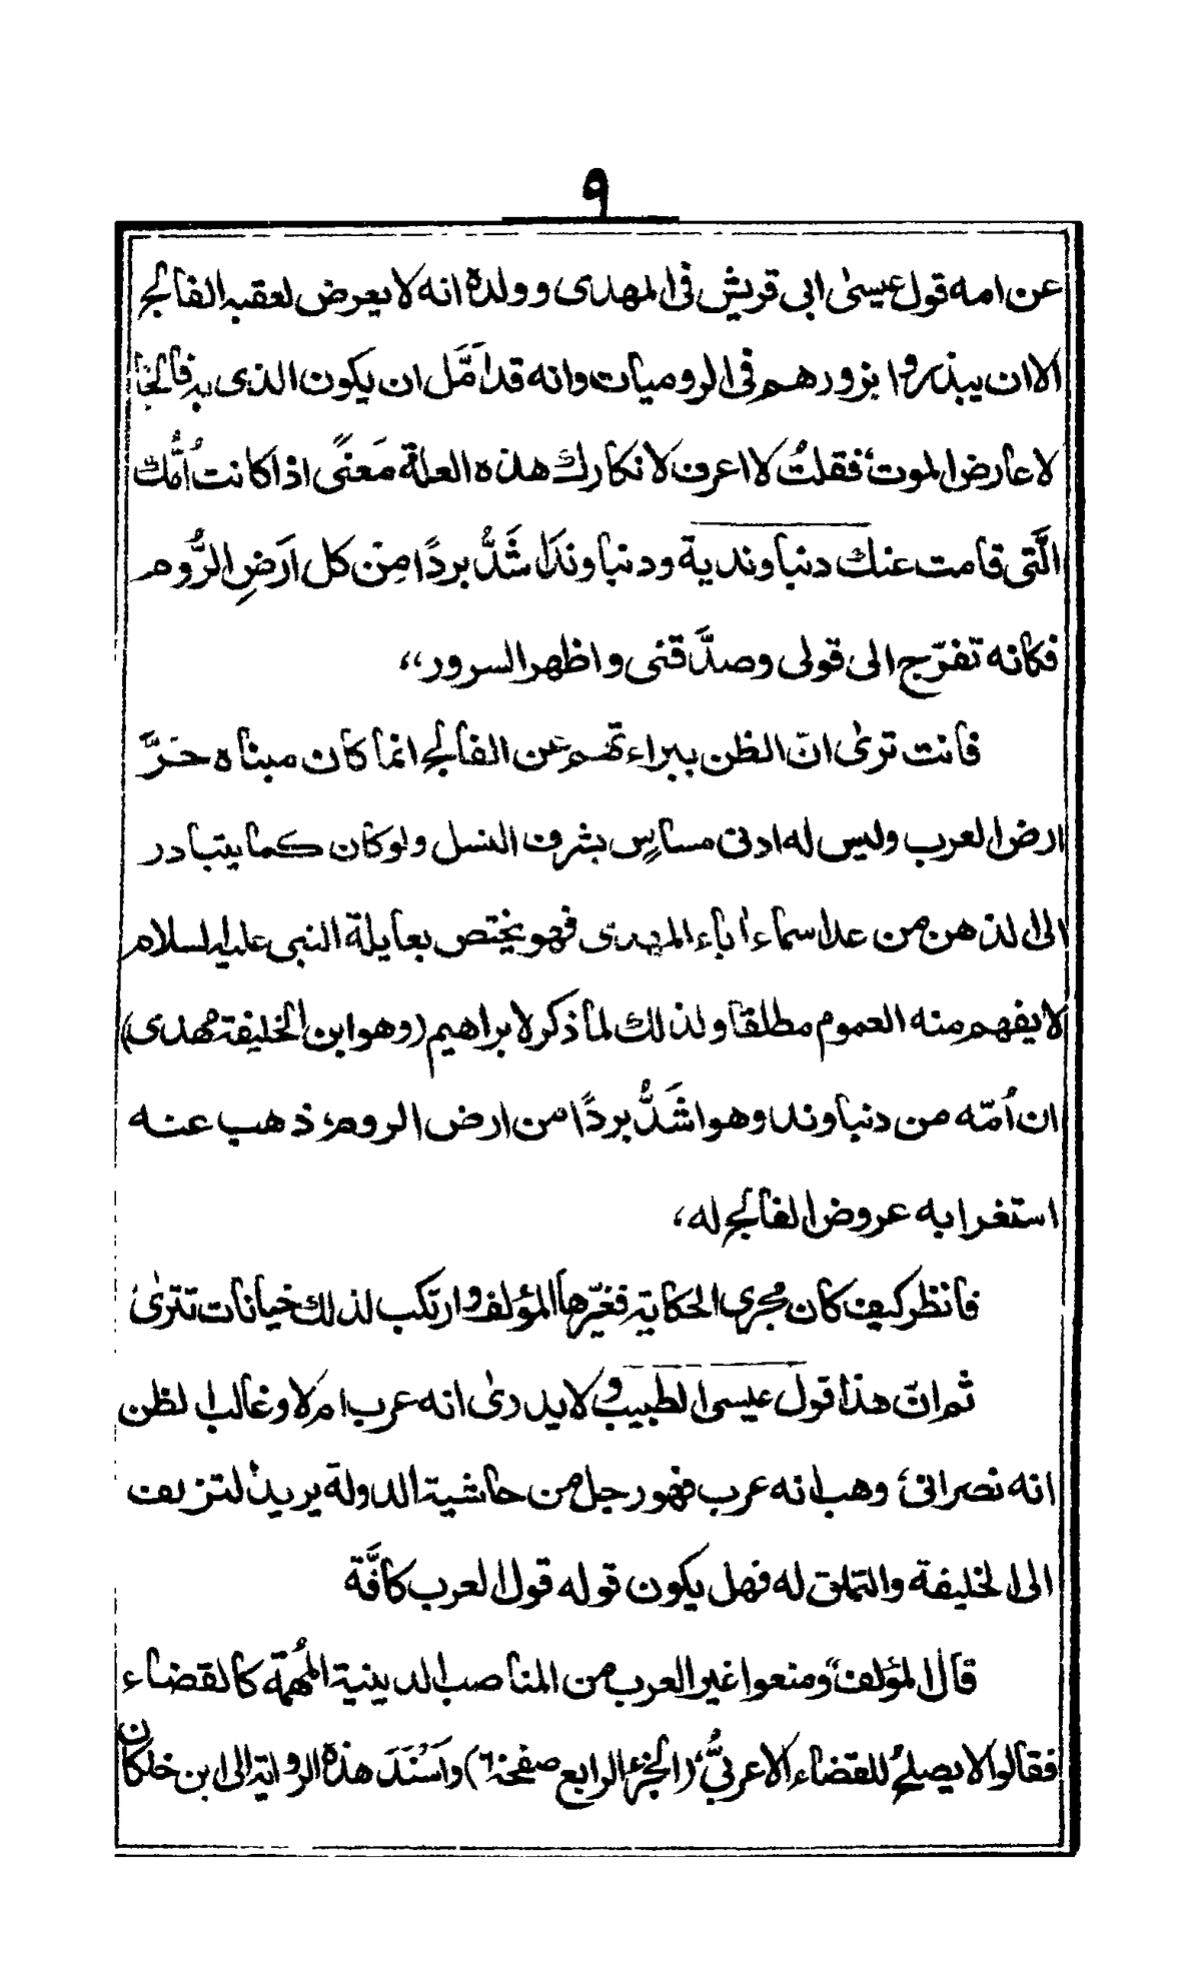 ٩
عن امه قول عيسىٰ ابى قريش فى المهدى وولدهٖ انه لا يعرض لعقبه الفالج
الا ان يبذروا بزورهم فى الروميات وانه قد اَمَّل ان يكون الذى به فالجًا
لا عارض الموت، فقلتُ لا اعرف لانكارك هذه العلة مَعنًى اذا كانت اُمُّك
الَّتى قامت عنك دنباوندية ودنباوند اشَدُّ بردًا مِن كل اَرَضِ الرُّوم
فكانه تفرّج الى قولى وصدَّقنى واظهر السرور،،
فانت ترىٰ انّ الظن ببراءتهم عن الفالج انما كان مبناه حَرَّ
ارض العرب وليس له ادنى مساسٍ بشرف النسل ولو كان كما يتبادر
الى الذهن من عد اسماء اٰباء المهدى فهو يختص بعايلة النبى عليه السلام
لا يفهم منه العموم مطلقا ولذلك لما ذكر لابراهيم (وهو ابن الخليفة مهدى)
ان اُمّه من دنباوند وهو اشَدُّ بردًا من ارض الروم، ذهب عنه
استغرابه عروض الفالج له،
فانظر كيف كان مجرى الحكاية فغيّرها المؤلف وارتكب لذلك خيانات تترىٰ
ثم انّ هذا قول عيسى الطبيب ولا يدرىٰ انه عرب ام لا وغالب الظن
انه نصرانى، وهب انه عرب فهو رجل من حاشية الدولة يريد التزلف
الى الخليفة والتملق له فهل يكون قوله قول العرب كافَّة
قال المؤلف "ومنعوا غير العرب من المناصب الدينية المُهمّة كالقضاء
فقالوا لا يصلحُ للقضاء الا عربىٌّ، (الجزء الرابع صفحة ٦) واَسْنَدَ هذه الرواية الى ابن خلكان